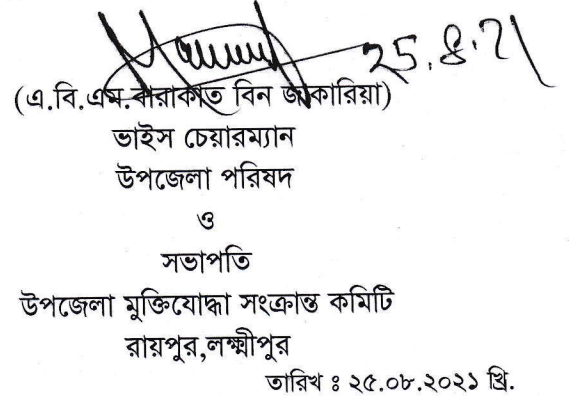 25.8.21
(এ.বি.এম.বারাকাত বিন জাকারিয়া)
ভাইস চেয়ারম্যান
উপজেলা পরিষদ
ও
সভাপতি
উপজেলা মুক্তিযোদ্ধা সংক্রান্ত কমিটি
রায়পুর,লক্ষ্মীপুর
তারিখ ঃ ২৫.০৮.২০২১ খ্রি.